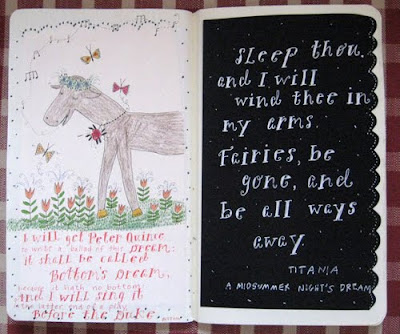 I will get Peter Quince
to write a ballad of this DREAM:
it shall be called
Bottom's Dream,
because it hath no bottom;
And I will sing it
in the latter end of a play,
Before the Duke.
Sleep thou,
and I will
wind thee in
my arms.
Fairies, be
gone, and
be all ways
away.
TITANIA
A MIDSUMMER NIGHT'S DREAM